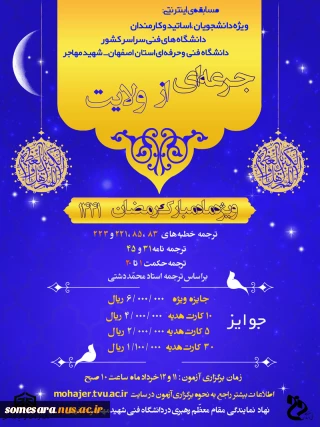 مسابقه‌ی اینترنتی:
ویژه دانشجویان، اساتید و کارمندان
دانشگاه های فنی سراسر کشور
دانشگاه فنی و حرفه‌ای استان اصفهان_شهید مهاجر
جرعه‌ای از ولایت
ویژه ماه مبارک رمضان ۱۴۴۱
ترجمه خطبه‌های ۸۳ ،۸۵ ،۲۲۱ و ۲۲۳
ترجمه نامه ۳۱ و ۴۵
ترجمه حکمت ۱ تا ۲۰
بر اساس ترجمه استاد محمد دشتی
جوایز
جایزه ویژه ۶/۰۰۰/۰۰۰ ریال
۱۰ کارت هدیه ۴/۰۰۰/۰۰۰ ریال
۵ کارت هدیه ۲/۰۰۰/۰۰۰ ریال
۳۰ کارت هدیه ۱/۱۰۰/۰۰۰ ریال
زمان برگزاری آزمون: ۱۱ و ۱۲ خرداد ماه ساعت ۱۰ صبح
اطلاعات بیشتر راجع به نحوه برگزاری آزمون در سایت mohajer.tvu.ac.ir
نهاد نمایندگی مقام معظم رهبری در دانشگاه فنی شهید
somesara.nus.ac.ir